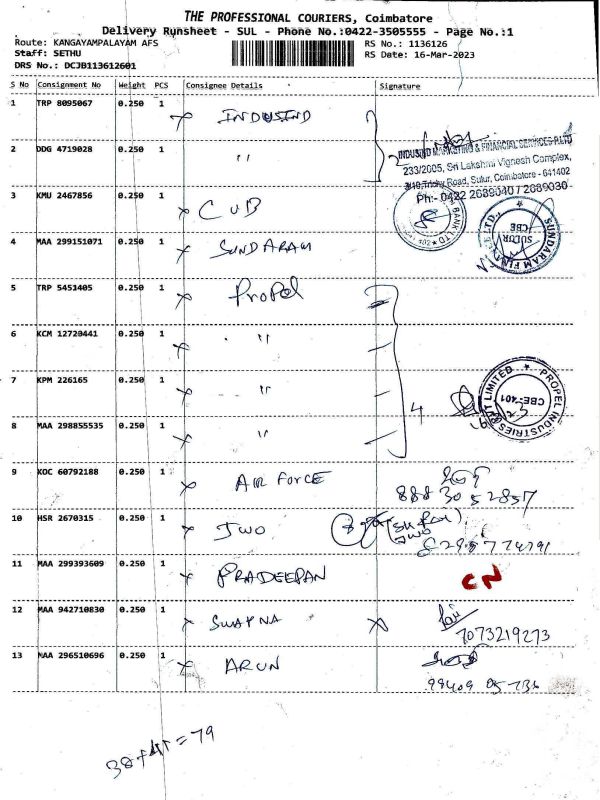 THE PROFESSIONAL COURIERS, Coimbatore
Delivery Runsheet - SUL - Phone No.:0422-3505555 - Page No.:1
Route: KANGAYAMPALAYAM AFS
RS No.: 1136126
Staff: SETHU
RS Date: 16-Mar-2023
DRS No.: DCJB113612601
S No Consignment No Weight PCS Consignee Details Signature
1 TRP 8095067 0.250 1 INDUSIND
2 DDG 4719028 0.250 1 "
INDUSIND MARKETING & FINANCIAL SERVICES P.LTD
233/2005, Sri Lakshmi Vignesh Complex,
Trichy Road, Sulur, Coimbatore - 641402
Ph:- 0422 2689040 / 2689030
3 KMU 2467856 0.250 1 CUB
BANK LTD
4 MAA 299151071 0.250 1 SUNDARAM
SUNDARAM FINANCE LTD.,
SULUR
CBE
5 TRP 5451405 0.250 1 Propel
6 KCM 12720441 0.250 1 "
7 KPM 226165 0.250 1 "
PROPEL INDUSTRIES PVT LIMITED
CBE-401
8 MAA 298855535 0.250 1 " 4
9 KOC 60792188 0.250 1 AIR FORCE
88830 52857
10 HSR 2670315 0.250 1 JWO
11 MAA 299393609 0.250 1 PRADEEPAN CN
12 MAA 942710830 0.250 1 SWAPNA
7073219273
13 MAA 296510696 0.250 1 ARUN
38+41=79